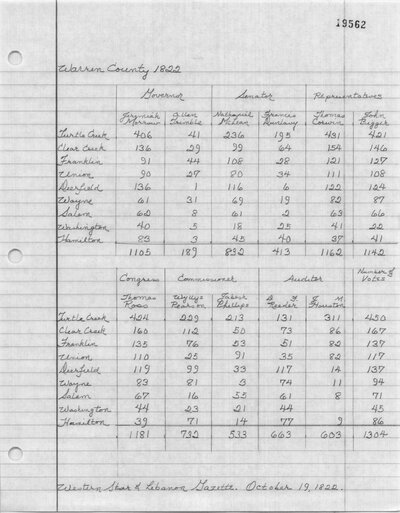 19562
Warren County 1822
Governor Senator Representatives
Jeremiah Allen Nathaniel Francis Thomas John
Morrow Trimble McLean Dunlavy Corwin Bigger
Turtle Creek 406 41 236 195 431 421
Clear Creek 136 29 99 64 154 146
Franklin 91 44 108 28 121 127
Union 90 27 80 34 111 108
Deerfield 136 1 116 6 122 124
Wayne 61 31 69 19 82 87
Salem 62 8 61 2 63 66
Washington 40 5 18 25 41 22
Hamilton 83 3 45 40 37 41
1105 189 832 413 1162 1142
Congress Commissioner Auditor Number of
Votes
Thomas Wyllys Jabish F. M.
Ross Pearson Phillips Reeder Houston
Turtle Creek 424 229 213 131 311 450
Clear Creek 160 112 50 73 86 167
Franklin 135 76 53 51 82 137
Union 110 25 91 35 82 117
Deerfield 119 99 33 117 14 137
Wayne 83 81 3 74 11 94
Salem 67 16 55 61 8 71
Washington 44 23 21 44 45
Hamilton 39 71 14 77 9 86
1181 732 533 663 603 1304
Western Star & Lebanon Gazette. October 19, 1822.